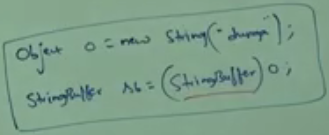 Object o = new String("durga");
StringBuffer sb = (StringBuffer) o;